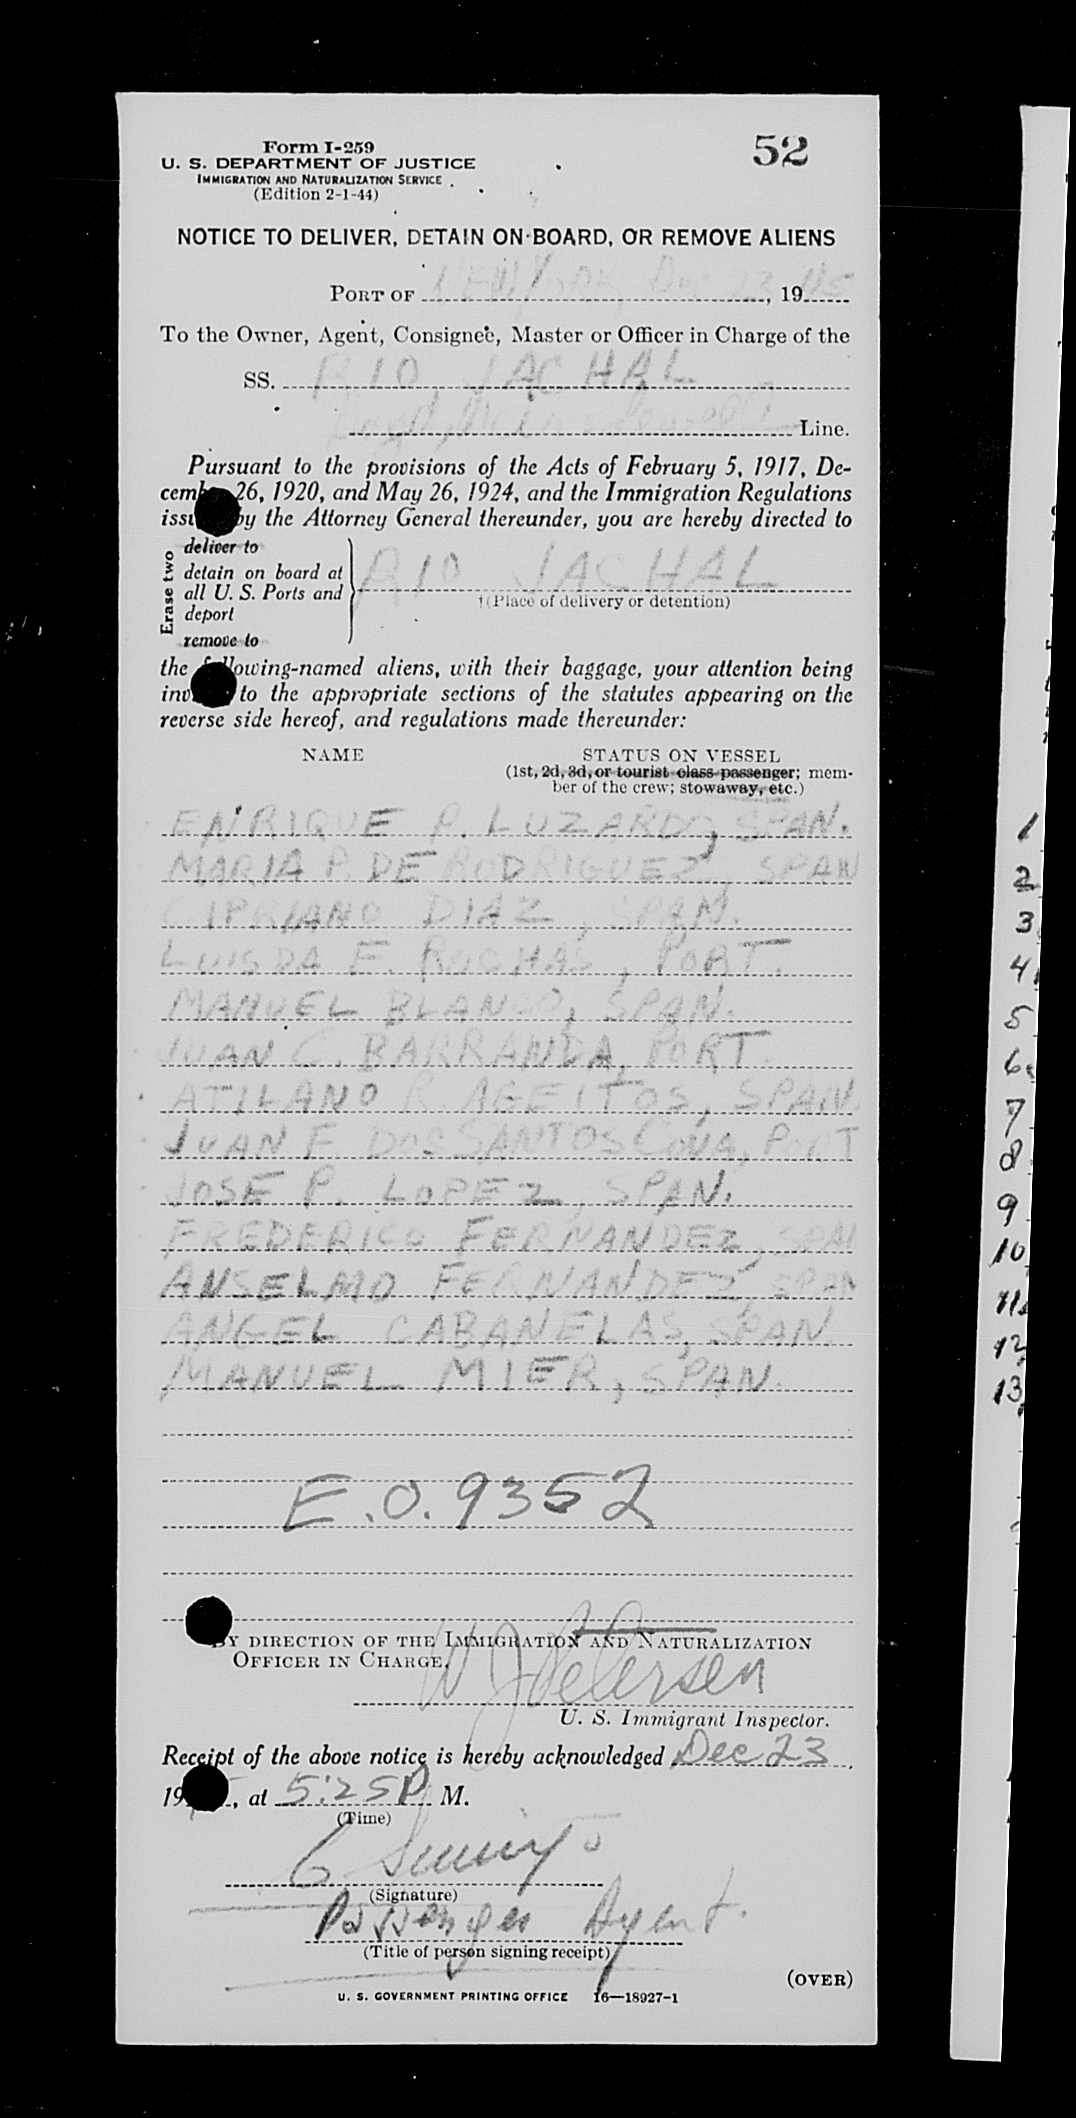 Form I-259
52
U. S. DEPARTMENT OF JUSTICE
IMMIGRATION AND NATURALIZATION SERVICE
(Edition 2-1-44)
NOTICE TO DELIVER, DETAIN ON BOARD, OR REMOVE ALIENS
PORT OF NEW YORK, Dec 23, 1945
To the Owner, Agent, Consignee, Master or Officer in Charge of the
SS. RIO JACHAL
Line.
Pursuant to the provisions of the Acts of February 5, 1917, De-
cember 26, 1920, and May 26, 1924, and the Immigration Regulations
issued by the Attorney General thereunder, you are hereby directed to
Erase two
deliver to
detain on board at
all U. S. Ports and
deport
remove to
RIO JACHAL
†(Place of delivery or detention)
the following-named aliens, with their baggage, your attention being
invited to the appropriate sections of the statutes appearing on the
reverse side hereof, and regulations made thereunder:
NAME STATUS ON VESSEL
(1st, 2d, 3d, or tourist class passenger; mem-
ber of the crew; stowaway, etc.)
ENRIQUE P. LUZARDO, SPAN. 1
MARIA P. DE RODRIGUEZ, SPAN 2
CIPRIANO DIAZ, SPAN. 3
LUISDA F. ROCHAS, PORT. 4
MANUEL BLANCO, SPAN. 5
JUAN C. BARRANDA, PORT. 6
ATILANO R. AGEITOS, SPAN. 7
JUAN F. DOS SANTOS COVA, PORT 8
JOSE P. LOPEZ, SPAN. 9
FREDERICO FERNANDEZ, SPAN 10
ANSELMO FERNANDEZ, SPAN 11
ANGEL CABANELAS, SPAN. 12
MANUEL MIER, SPAN. 13
E.O. 9352
BY DIRECTION OF THE IMMIGRATION AND NATURALIZATION
OFFICER IN CHARGE.
W J Petersen
U. S. Immigrant Inspector.
Receipt of the above notice is hereby acknowledged Dec 23,
19, at 5:25 P M.
(Time)
(Signature)
Passenger Agent.
(Title of person signing receipt)
(OVER)
U. S. GOVERNMENT PRINTING OFFICE 16—18927-1